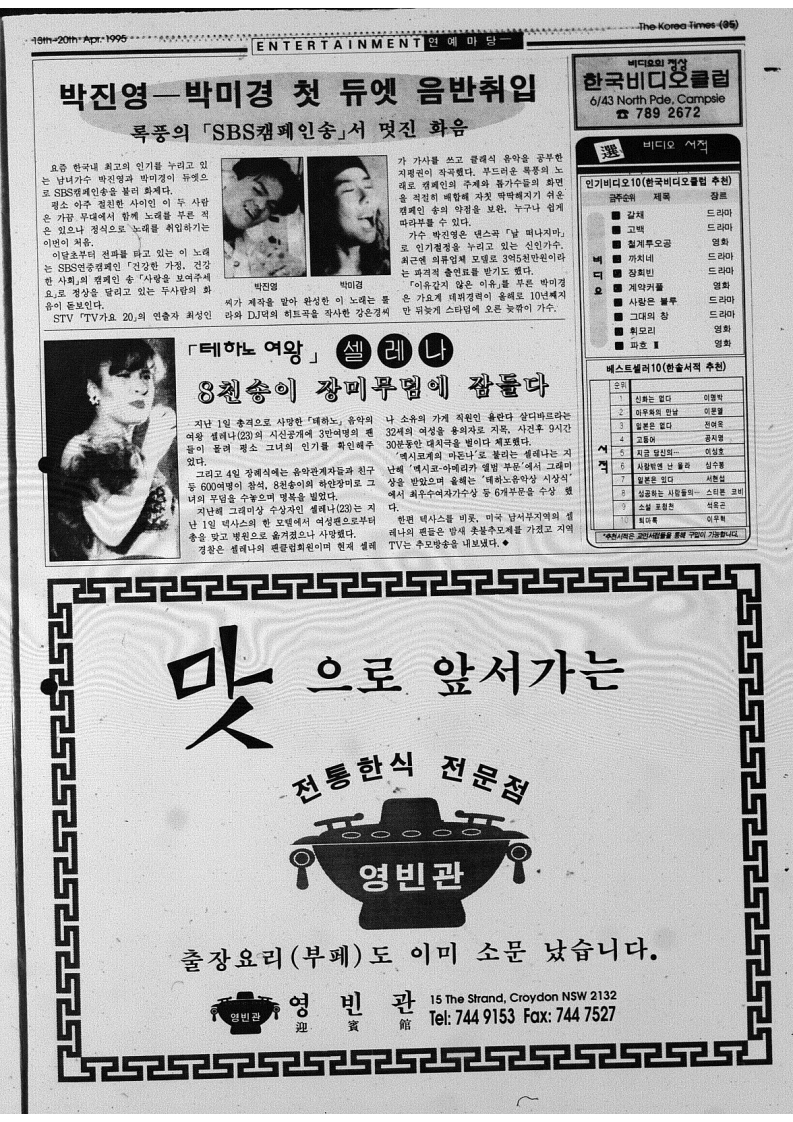 13th-20th Apr. 1995
The Korea Times (35)
ENTERTAINMENT 연예마당
박진영—박미경 첫 듀엣 음반취입
록풍의 「SBS캠페인송」서 멋진 화음
요즘 한국내 최고의 인기를 누리고 있
는 남녀가수 박진영과 박미경이 듀엣으
로 SBS캠페인송을 불러 화제다.
평소 아주 절친한 사이인 이 두 사람
은 가끔 무대에서 함께 노래를 부른 적
은 있으나 정식으로 노래를 취입하기는
이번이 처음.
이달초부터 전파를 타고 있는 이 노래
는 SBS연중캠페인 「건강한 가정, 건강
한 사회」의 캠페인 송 「사랑을 보여주세
요」로 정상을 달리고 있는 두사람의 화
음이 돋보인다.
STV 「TV가요 20」의 연출자 최성인
박진영
박미경
씨가 제작을 맡아 완성한 이 노래는 룰
라와 DJ덕의 히트곡을 작사한 강은경씨
가 가사를 쓰고 클래식 음악을 공부한
지평권이 작곡했다. 부드러운 록풍의 노
래로 캠페인의 주제와 톱가수들의 화면
을 적절히 배합해 자칫 딱딱해지기 쉬운
캠페인 송의 약점을 보완, 누구나 쉽게
따라부를 수 있다.
가수 박진영은 댄스곡 「날 떠나지마」
로 인기절정을 누리고 있는 신인가수.
최근엔 의류업체 모델로 3억5천만원이라
는 파격적 출연료를 받기도 했다.
「이유같지 않은 이유」를 부른 박미경
은 가요계 데뷔경력이 올해로 10년째지
만 뒤늦게 스타덤에 오른 늦깎이 가수.
「테하노 여왕」 셀레나
8천송이 장미무덤에 잠들다
지난 1일 총격으로 사망한 「테하노」 음악의
여왕 셀레나(23)의 시신공개에 3만여명의 팬
들이 몰려 평소 그녀의 인기를 확인해주
었다.
그리고 4일 장례식에는 음악관계자들과 친구
등 600여명이 참석, 8천송이의 하얀장미로 그
녀의 무덤을 수놓으며 명복을 빌었다.
지난해 그래미상 수상자인 셀레나(23)는 지
난 1일 텍사스의 한 모텔에서 여성팬으로부터
총을 맞고 병원으로 옮겨졌으나 사망했다.
경찰은 셀레나의 팬클럽회원이며 현재 셀레
나 소유의 가게 직원인 욜란다 살디바르라는
32세의 여성을 용의자로 지목, 사건후 9시간
30분동안 대치극을 벌이다 체포했다.
'멕시코계의 마돈나'로 불리는 셀레나는 지
난해 '멕시코-아메리카 앨범 부문'에서 그래미
상을 받았으며 올해는 '테하노음악상 시상식'
에서 최우수여자가수상 등 6개부문을 수상 했
다.
한편 텍사스를 비롯, 미국 남서부지역의 셀
레나의 팬들은 밤새 촛불추모제를 가졌고 지역
TV는 추모방송을 내보냈다.◆
비디오의 정상
한국비디오클럽
6/43 North Pde, Campsie
☎ 789 2672
選 비디오 서적
인기비디오10(한국비디오클럽 추천)
금주순위 제목 장르
비디오
갈채 드라마
고백 드라마
철계투오공 영화
까치네 드라마
장희빈 드라마
계약커플 영화
사랑은 블루 드라마
그대의 창 드라마
휘모리 영화
파호 Ⅱ 영화
베스트셀러10(한솔서적 추천)
순위
서적
1 신화는 없다 이명박
2 아우와의 만남 이문열
3 일본은 없다 전여옥
4 고등어 공지영
5 지금 당신의… 이성호
6 사랑밖엔 난 몰라 심수봉
7 일본은 있다 서현섭
8 성공하는 사람들의… 스티븐 코비
9 소설 포청천 석옥곤
10 퇴마록 이우혁
*추천서적은 교민서점들을 통해 구입이 가능합니다.
맛으로 앞서가는
전통한식 전문점
영빈관
출장요리(부페)도 이미 소문 났습니다.
영빈관
영빈관
迎賓館
15 The Strand, Croydon NSW 2132
Tel: 744 9153 Fax: 744 7527